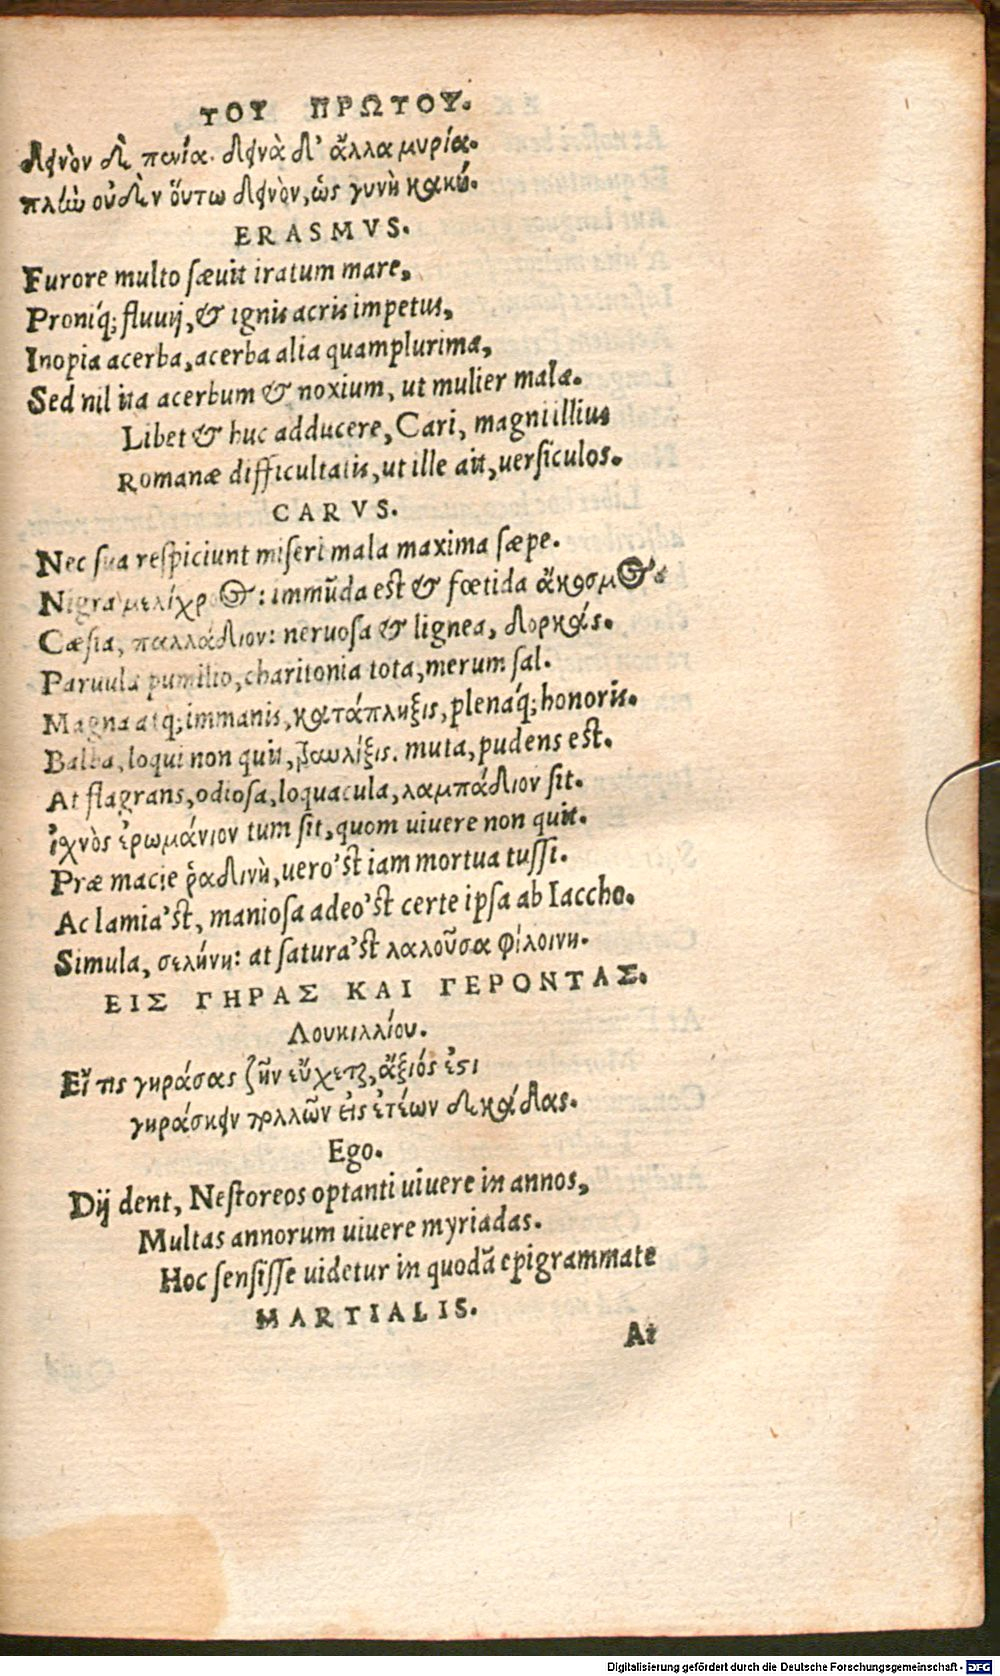 ΤΟΥ ΠΡΩΤΟΥ.
Δεινὸν δὲ πενία. δεινὰ δ’ ἄλλα μυρία.
πλὴν οὐδὲν ὅυτω δεινὸν, ὡς γυνὴ κακή.
ERASMVS.
Furore multo sæuit iratum mare,
Proniq́; fluuij, & ignis acris impetus,
Inopia acerba, acerba alia quamplurima,
Sed nil ita acerbum & noxium, ut mulier mala.
Libet & huc adducere, Cari, magni illius
Romanæ difficultatis, ut ille ait, uersiculos.
CARVS.
Nec sua respiciunt miseri mala maxima sæpe.
Nigra μελίχροος: immũda est & fœtida ἄκοσμος.
Cæsia, παλλάδιον: neruosa & lignea, δορκάς.
Paruula pumilio, charitonia tota, merum sal.
Magna atq; immanis, κατάπληξις, plenaq́; honoris.
Balba, loqui non quit, muta, pudens est.
At flagrans, odiosa, loquacula, λαμπάδιον sit.
ἰχνὸς ἐρωμάνιον tum sit, quom uiuere non quit.
Præ macie ῥαδινὴ, uero’st iam mortua tussi.
Ac lamia’st, maniosa adeo’st certe ipsa ab Iaccho.
Simula, σελήνη: at satura’st λαλοῦσα φίλοινη.
ΕΙΣ ΓΗΡΑΣ ΚΑΙ ΓΕΡΟΝΤΑΣ.
Λουκιλλίου.
Εἴ τις γηράσας ζῆν εὔχεται, ἄξιός ἐστι
γηράσκειν πολλῶν εἰς ἐτέων δεκάδας.
Ego.
Dij dent, Nestoreos optanti uiuere in annos,
Multas annorum uiuere myriadas.
Hoc sensisse uidetur in quodã epigrammate
MARTIALIS.
At
Digitalisierung gefördert durch die Deutsche Forschungsgemeinschaft - DFG